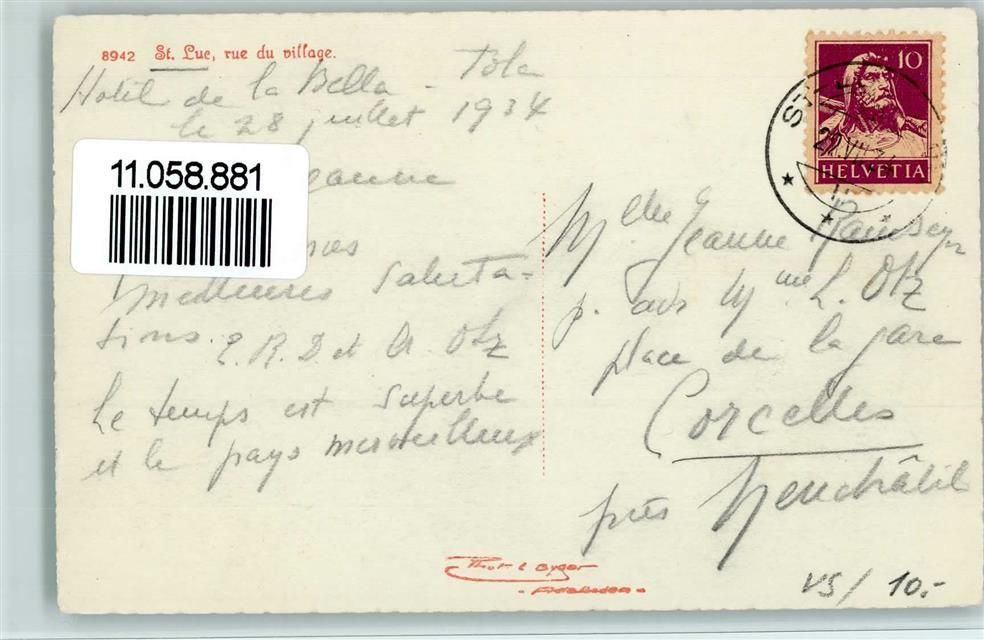 8942 St. Luc, rue du village.
Hotel de la Bella - Tola
le 28 juillet 1934
11.058.881
Jeanne
nos
meilleures saluta-
tions. E. R. D et A. Otz
Le temps est superbe
et le pays merveilleux
10
HELVETIA
ST
Mlle Jeanne
p. adr Mme L. Otz
place de la gare
Corcelles
près Neuchâtel
Phot. E. Gyger
- Adelboden -
VS/ 10.-